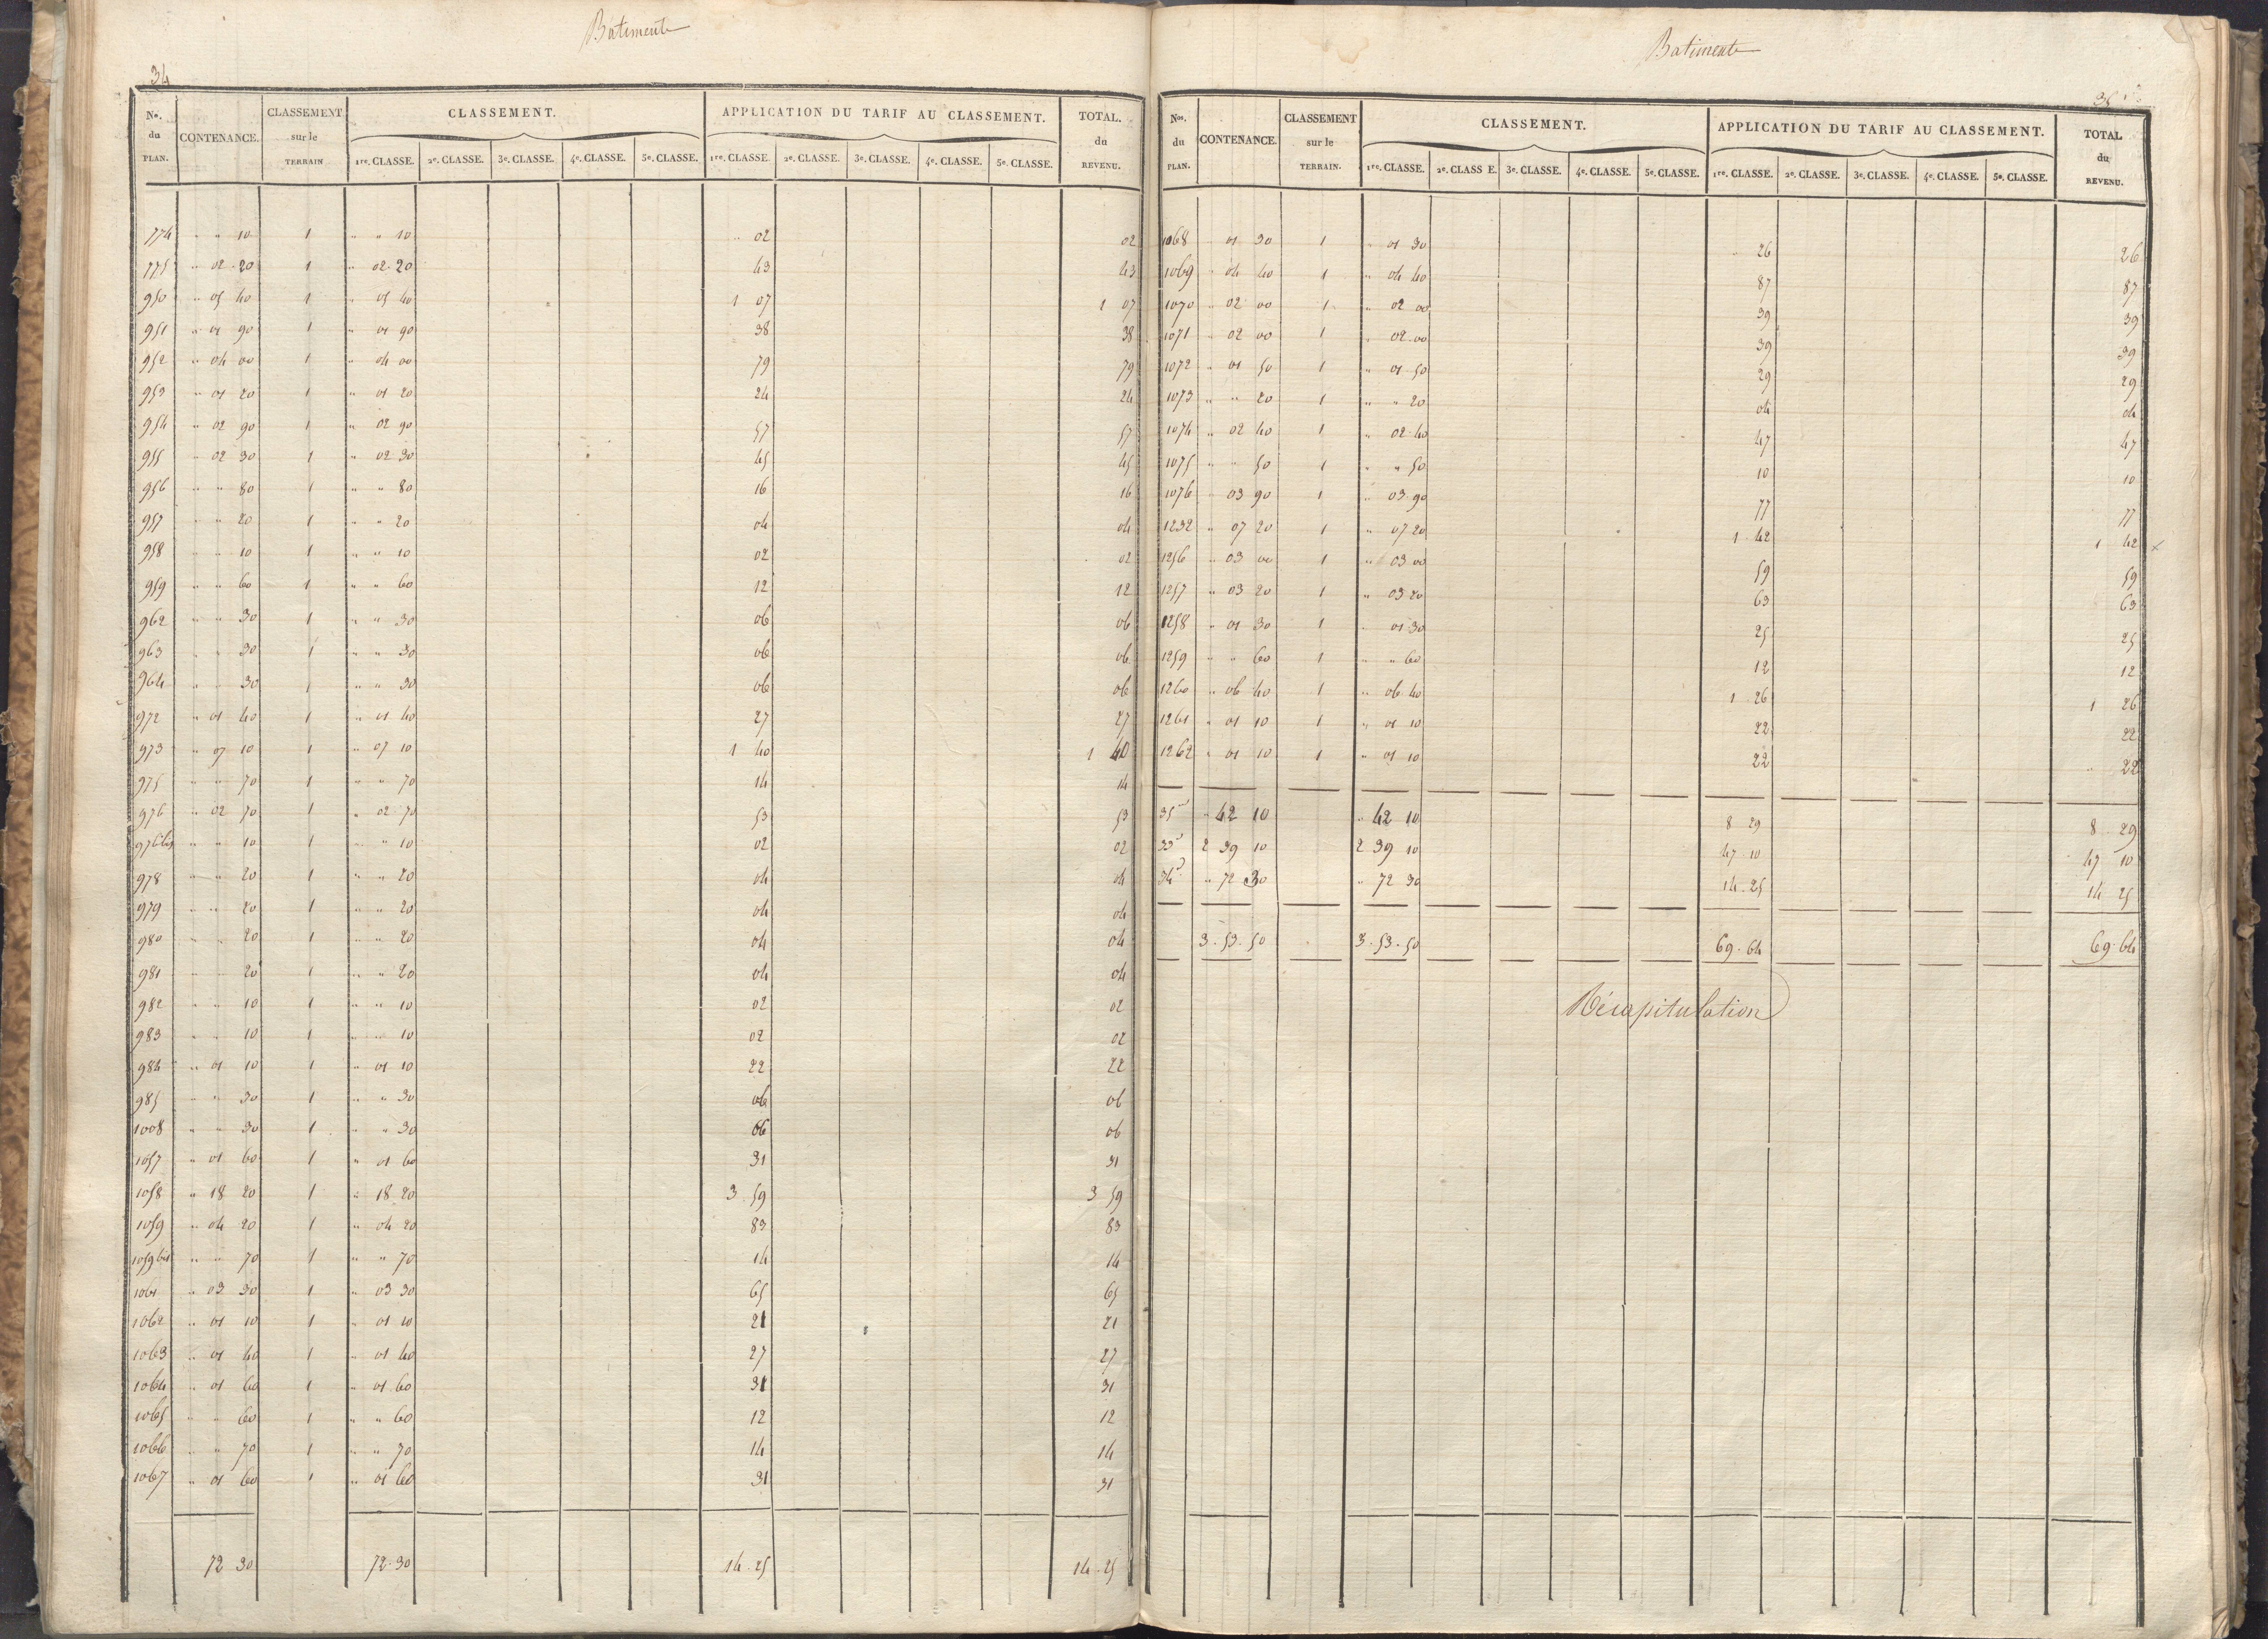 Batiments
34
No. du PLAN. CONTENANCE. CLASSEMENT sur le TERRAIN CLASSEMENT. APPLICATION DU TARIF AU CLASSEMENT. TOTAL. du REVENU.
1re. CLASSE. 2e. CLASSE. 3e. CLASSE. 4e. CLASSE. 5e. CLASSE. 1re. CLASSE. 2e. CLASSE. 3e. CLASSE. 4e. CLASSE. 5e. CLASSE.
774 " " 10 1 " " 10 " 02 02
775 " 02 20 1 " 02 20 43 43
950 " 05 40 1 " 05 40 1 07 1 07
951 " 01 90 1 " 01 90 38 38
952 " 04 00 1 " 04 00 79 79
953 " 01 20 1 " 01 20 24 24
954 " 02 90 1 " 02 90 57 57
955 " 02 30 1 " 02 30 45 45
956 " " 80 1 " " 80 16 16
957 " " 20 1 " " 20 04 04
958 " " 10 1 " " 10 02 02
959 " " 60 1 " " 60 12 12
962 " " 30 1 " " 30 06 06
963 " " 30 1 " " 30 06 06
964 " " 30 1 " " 30 06 06
972 " 01 40 1 " 01 40 27 27
973 " 07 10 1 " 07 10 1 40 1 40
975 " " 70 1 " " 70 14 14
976 " 02 70 1 " 02 70 53 53
976bis " " 10 1 " " 10 02 02
978 " " 20 1 " " 20 04 04
979 " " 20 1 " " 20 04 04
980 " " 20 1 " " 20 04 04
981 " " 20 1 " " 20 04 04
982 " " 10 1 " " 10 02 02
983 " " 10 1 " " 10 02 02
984 " 01 10 1 " 01 10 22 22
985 " " 30 1 " " 30 06 06
1008 " " 30 1 " " 30 06 06
1057 " 01 60 1 " 01 60 31 31
1058 " 18 20 1 " 18 20 3 59 3 59
1059 " 04 20 1 " 04 20 83 83
1059 bis " " 70 1 " " 70 14 14
1061 " 03 30 1 " 03 30 65 65
1062 " 01 10 1 " 01 10 21 21
1063 " 01 40 1 " 01 40 27 27
1064 " 01 60 1 " 01 60 31 31
1065 " " 60 1 " " 60 12 12
1066 " " 70 1 " " 70 14 14
1067 " 01 60 1 " 01 60 31 31
72 30 72.30 14.25 14.25
Batiments
35
Nos. du PLAN. CONTENANCE. CLASSEMENT sur le TERRAIN. CLASSEMENT. APPLICATION DU TARIF AU CLASSEMENT. TOTAL du REVENU.
1re. CLASSE. 2e. CLASS E. 3e. CLASSE. 4e. CLASSE. 5e. CLASSE. 1re. CLASSE. 2e. CLASSE. 3e. CLASSE. 4e. CLASSE. 5e. CLASSE.
1068 " 01 30 1 " 01 30 " 26 26
1069 " 04 40 1 " 04 40 87 87
1070 " 02 00 1 " 02 00 39 39
1071 " 02 00 1 " 02.00 39 39
1072 " 01 50 1 " 01 50 29 29
1073 " " 20 1 " " 20 04 04
1074 " 02 40 1 " 02.40 47 47
1075 " " 50 1 " " 50 10 10
1076 " 03 90 1 " 03.90 77 77
1232 " 07 20 1 " 07 20 1 42 1 42 x
1256 " 03 00 1 " 03 00 59 59
1257 " 03 20 1 " 03 20 63 63
1258 " 01 30 1 " 01.30 25 25
1259 " " 60 1 " " 60 12 12
1260 " 06 40 1 " 06 40 1 26 1 26
1261 " 01 10 1 " 01 10 22 22
1262 " 01 10 1 " 01 10 22 " 22
35 " 42 10 " 42 10 8 29 8 29
33 2 39 10 2 39 10 47.10 47 10
34 " 72 30 " 72 30 14.25 14 25
3.53.50 3.53.50 69.64 69.64
Récapitulation